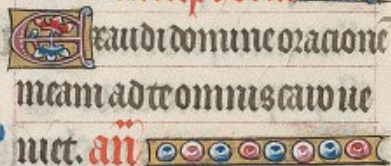 Exaudi domine oracione
meam ad te omnis caro ue
niet. an̄